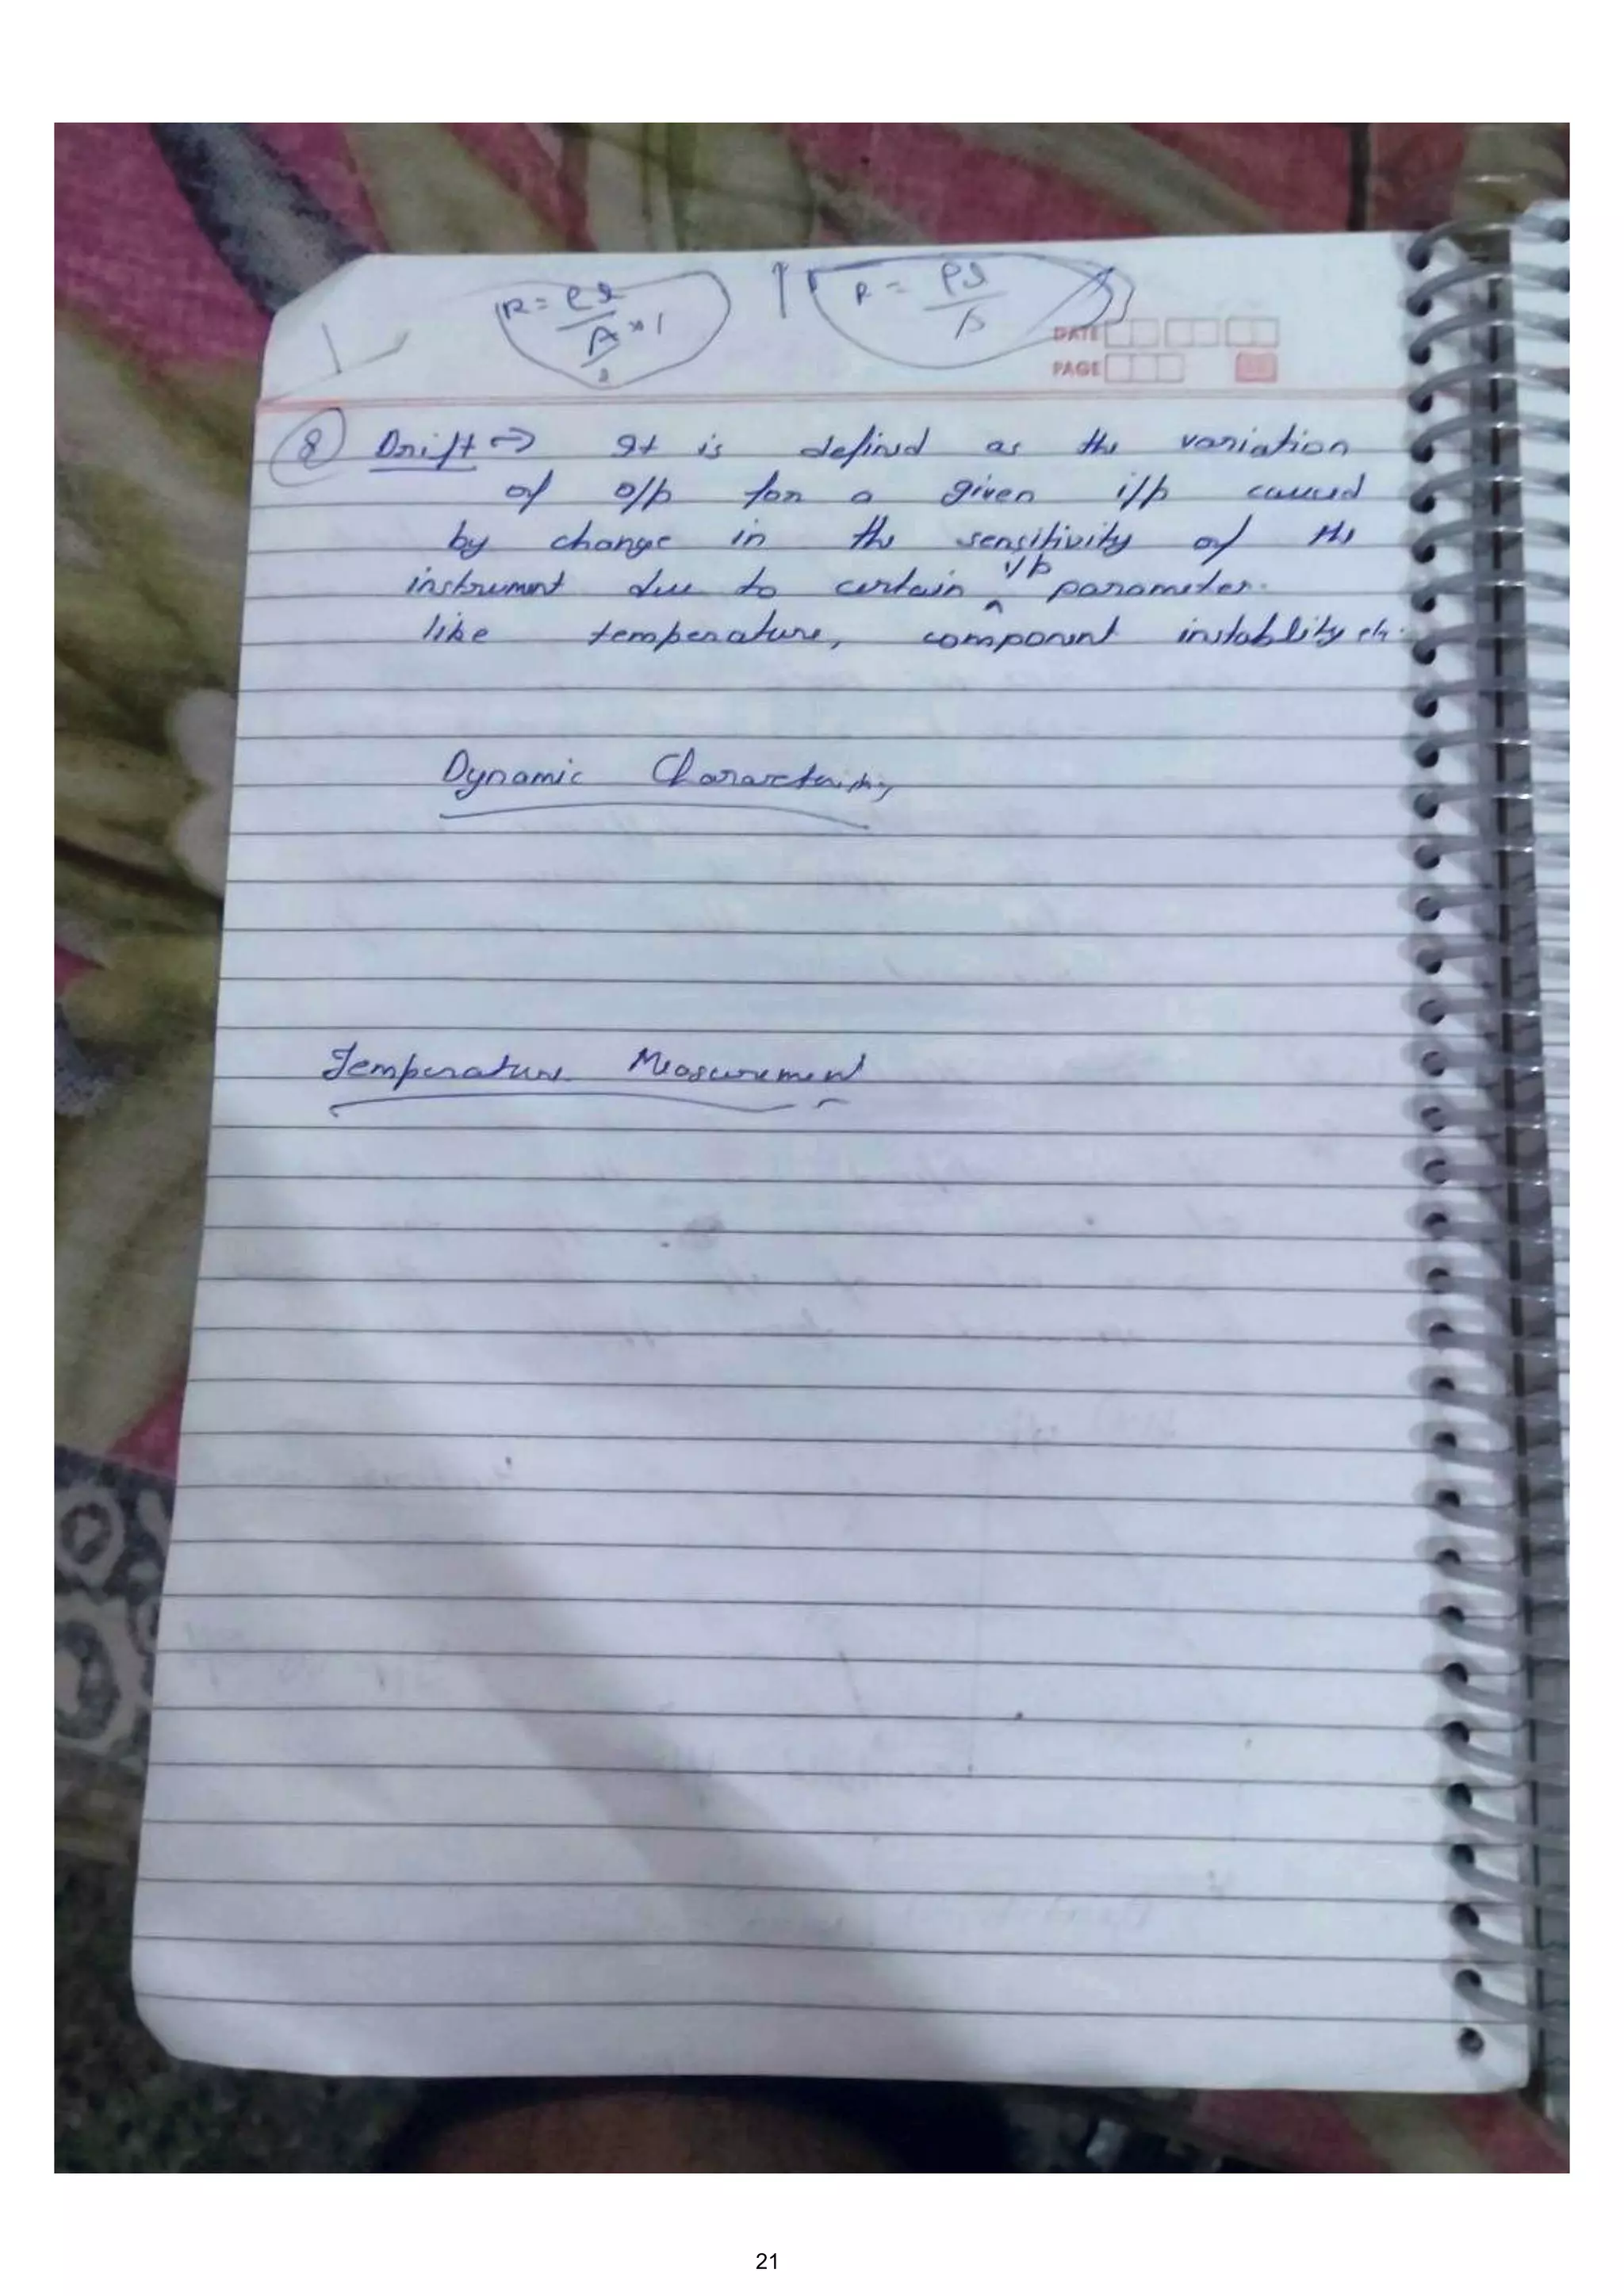 R = ρl
A × 1
2
R = ρl
A
DATE
PAGE
8 Drift → It is defined as the variation
of o/p for a given i/p caused
by change in the sensitivity of the
i/p
instrument due to certain ^ parameter.
like temperature, component instablity etc.
Dynamic Characteristics
Temperature Measurement
21